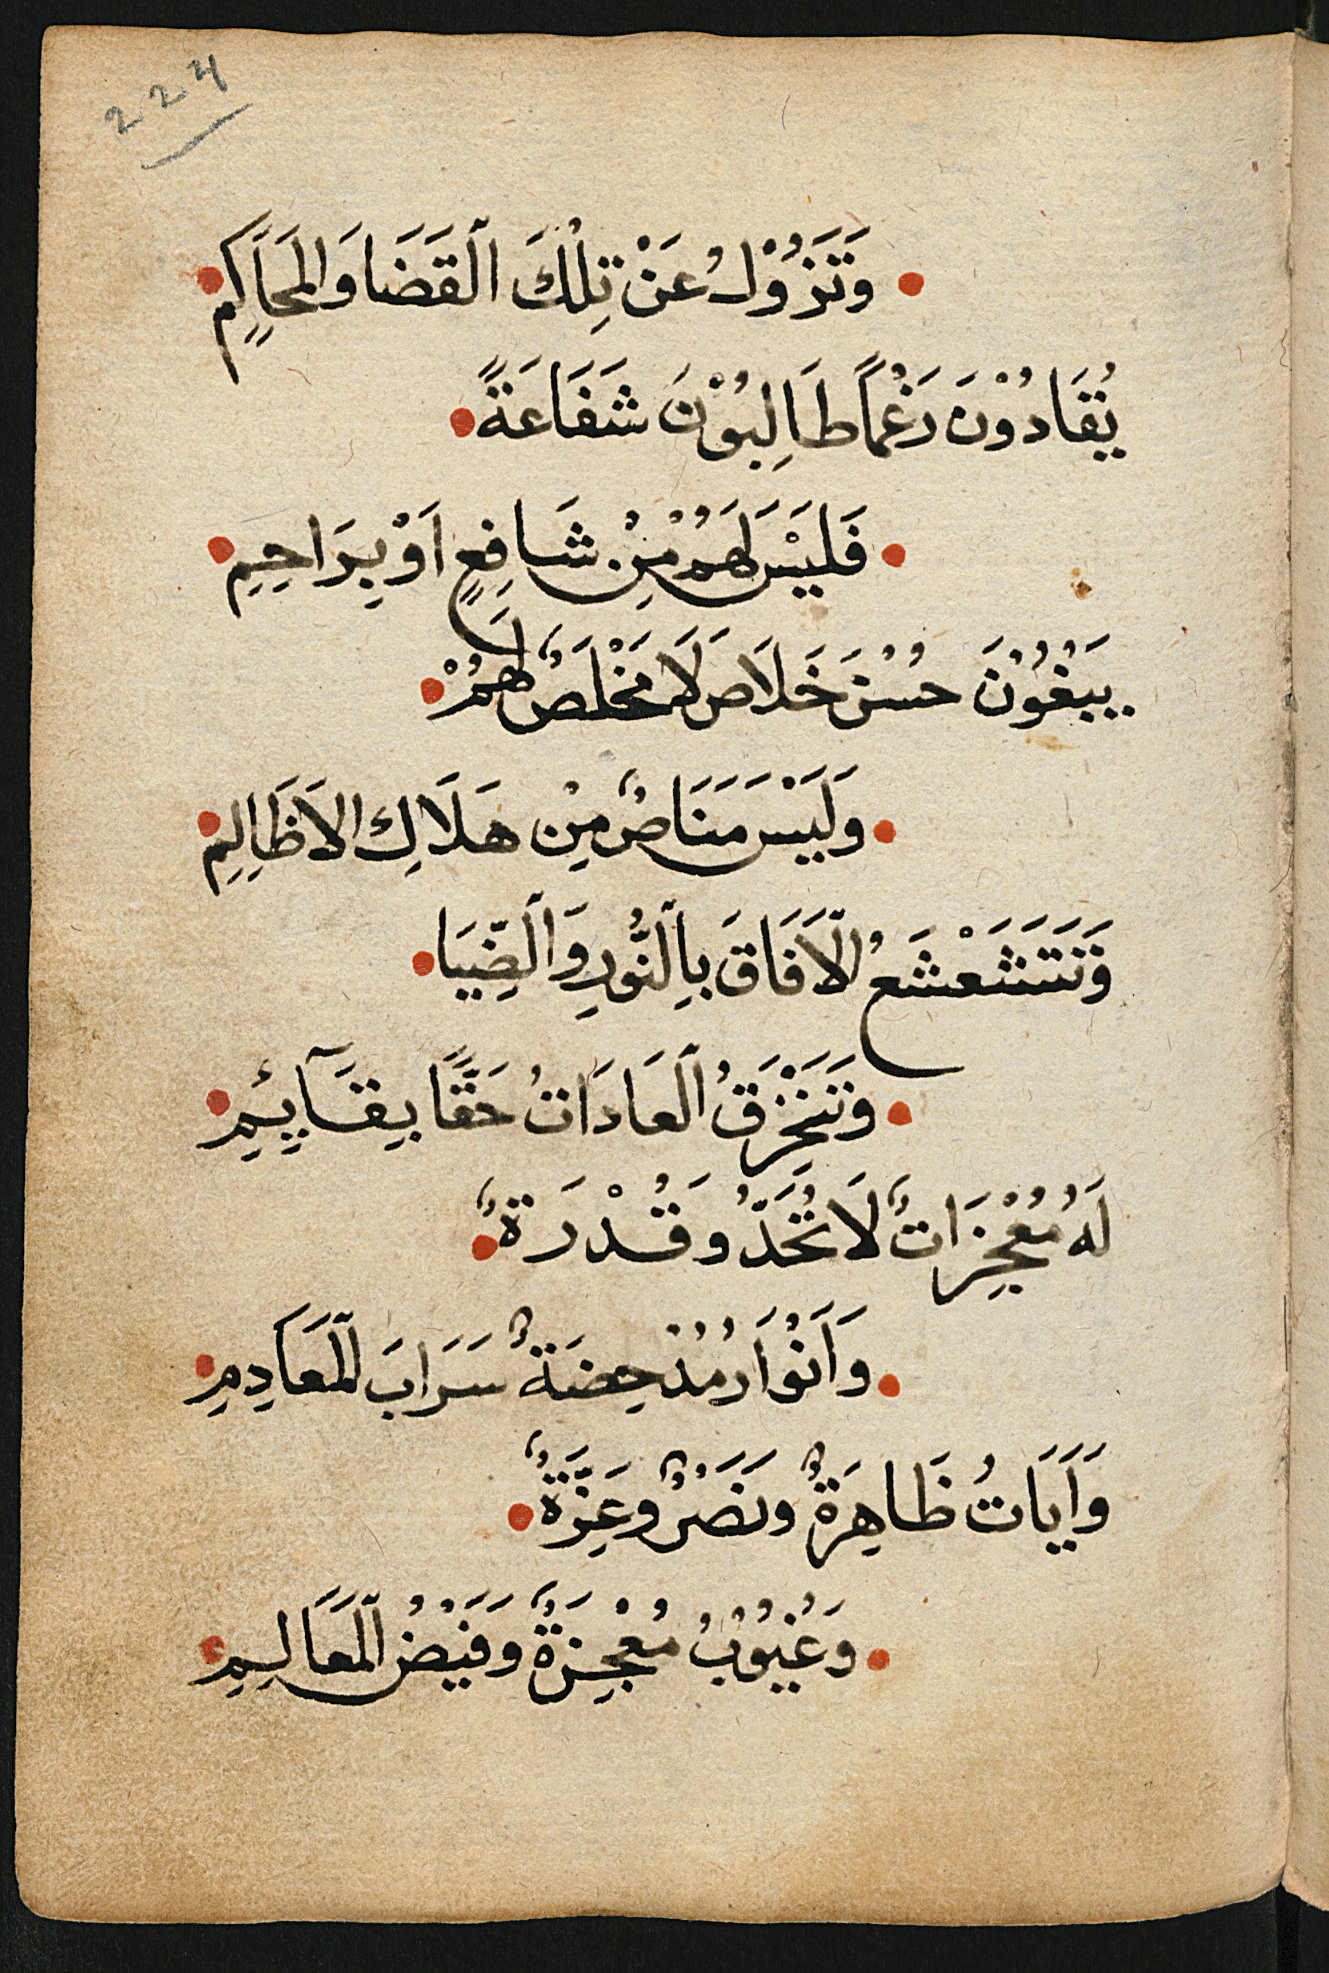 224
وَتَزُوْلُ عَنْ تِلْكَ الْقَضَا وَالمَحَاكِمِ
يُقَادُوْنَ رَغْمًا طَالِبُوْنَ شَفَاعَةً
فَلَيْسَ لَهُمْ مِنْ شَافِعٍ اَوْ بِرَاحِمِ
يَبْغُوْنَ حُسْنَ خَلَاصَ لَا مَخْلَصٌ لَهُمْ
وَلَيْسَ مَنَاصٌ مِنْ هَلَاكِ الاَظَالِمِ
وَتَتَشَعْشَعُ الْآفَاقَ بِالنُّوْرِ وَالضِّيَا
وَتَنْخَرِقُ الْعَادَاتُ حَقًّا بِقَآئِمِ
لَهُ مُعْجِزَاتٌ لَا تُحَدُّ وَقُدْرَةٌ
وَاَنْوَارُ مُدْحِضَةٌ سَرَابَ الْمَعَادِمِ
وَآيَاتُ ظَاهِرَةٌ وَنَصْرٌ وَعِزَّةٌ
وَغُيُوْبُ مُعْجِزَةٌ وَفَيْضُ الْمَعَالِمِ